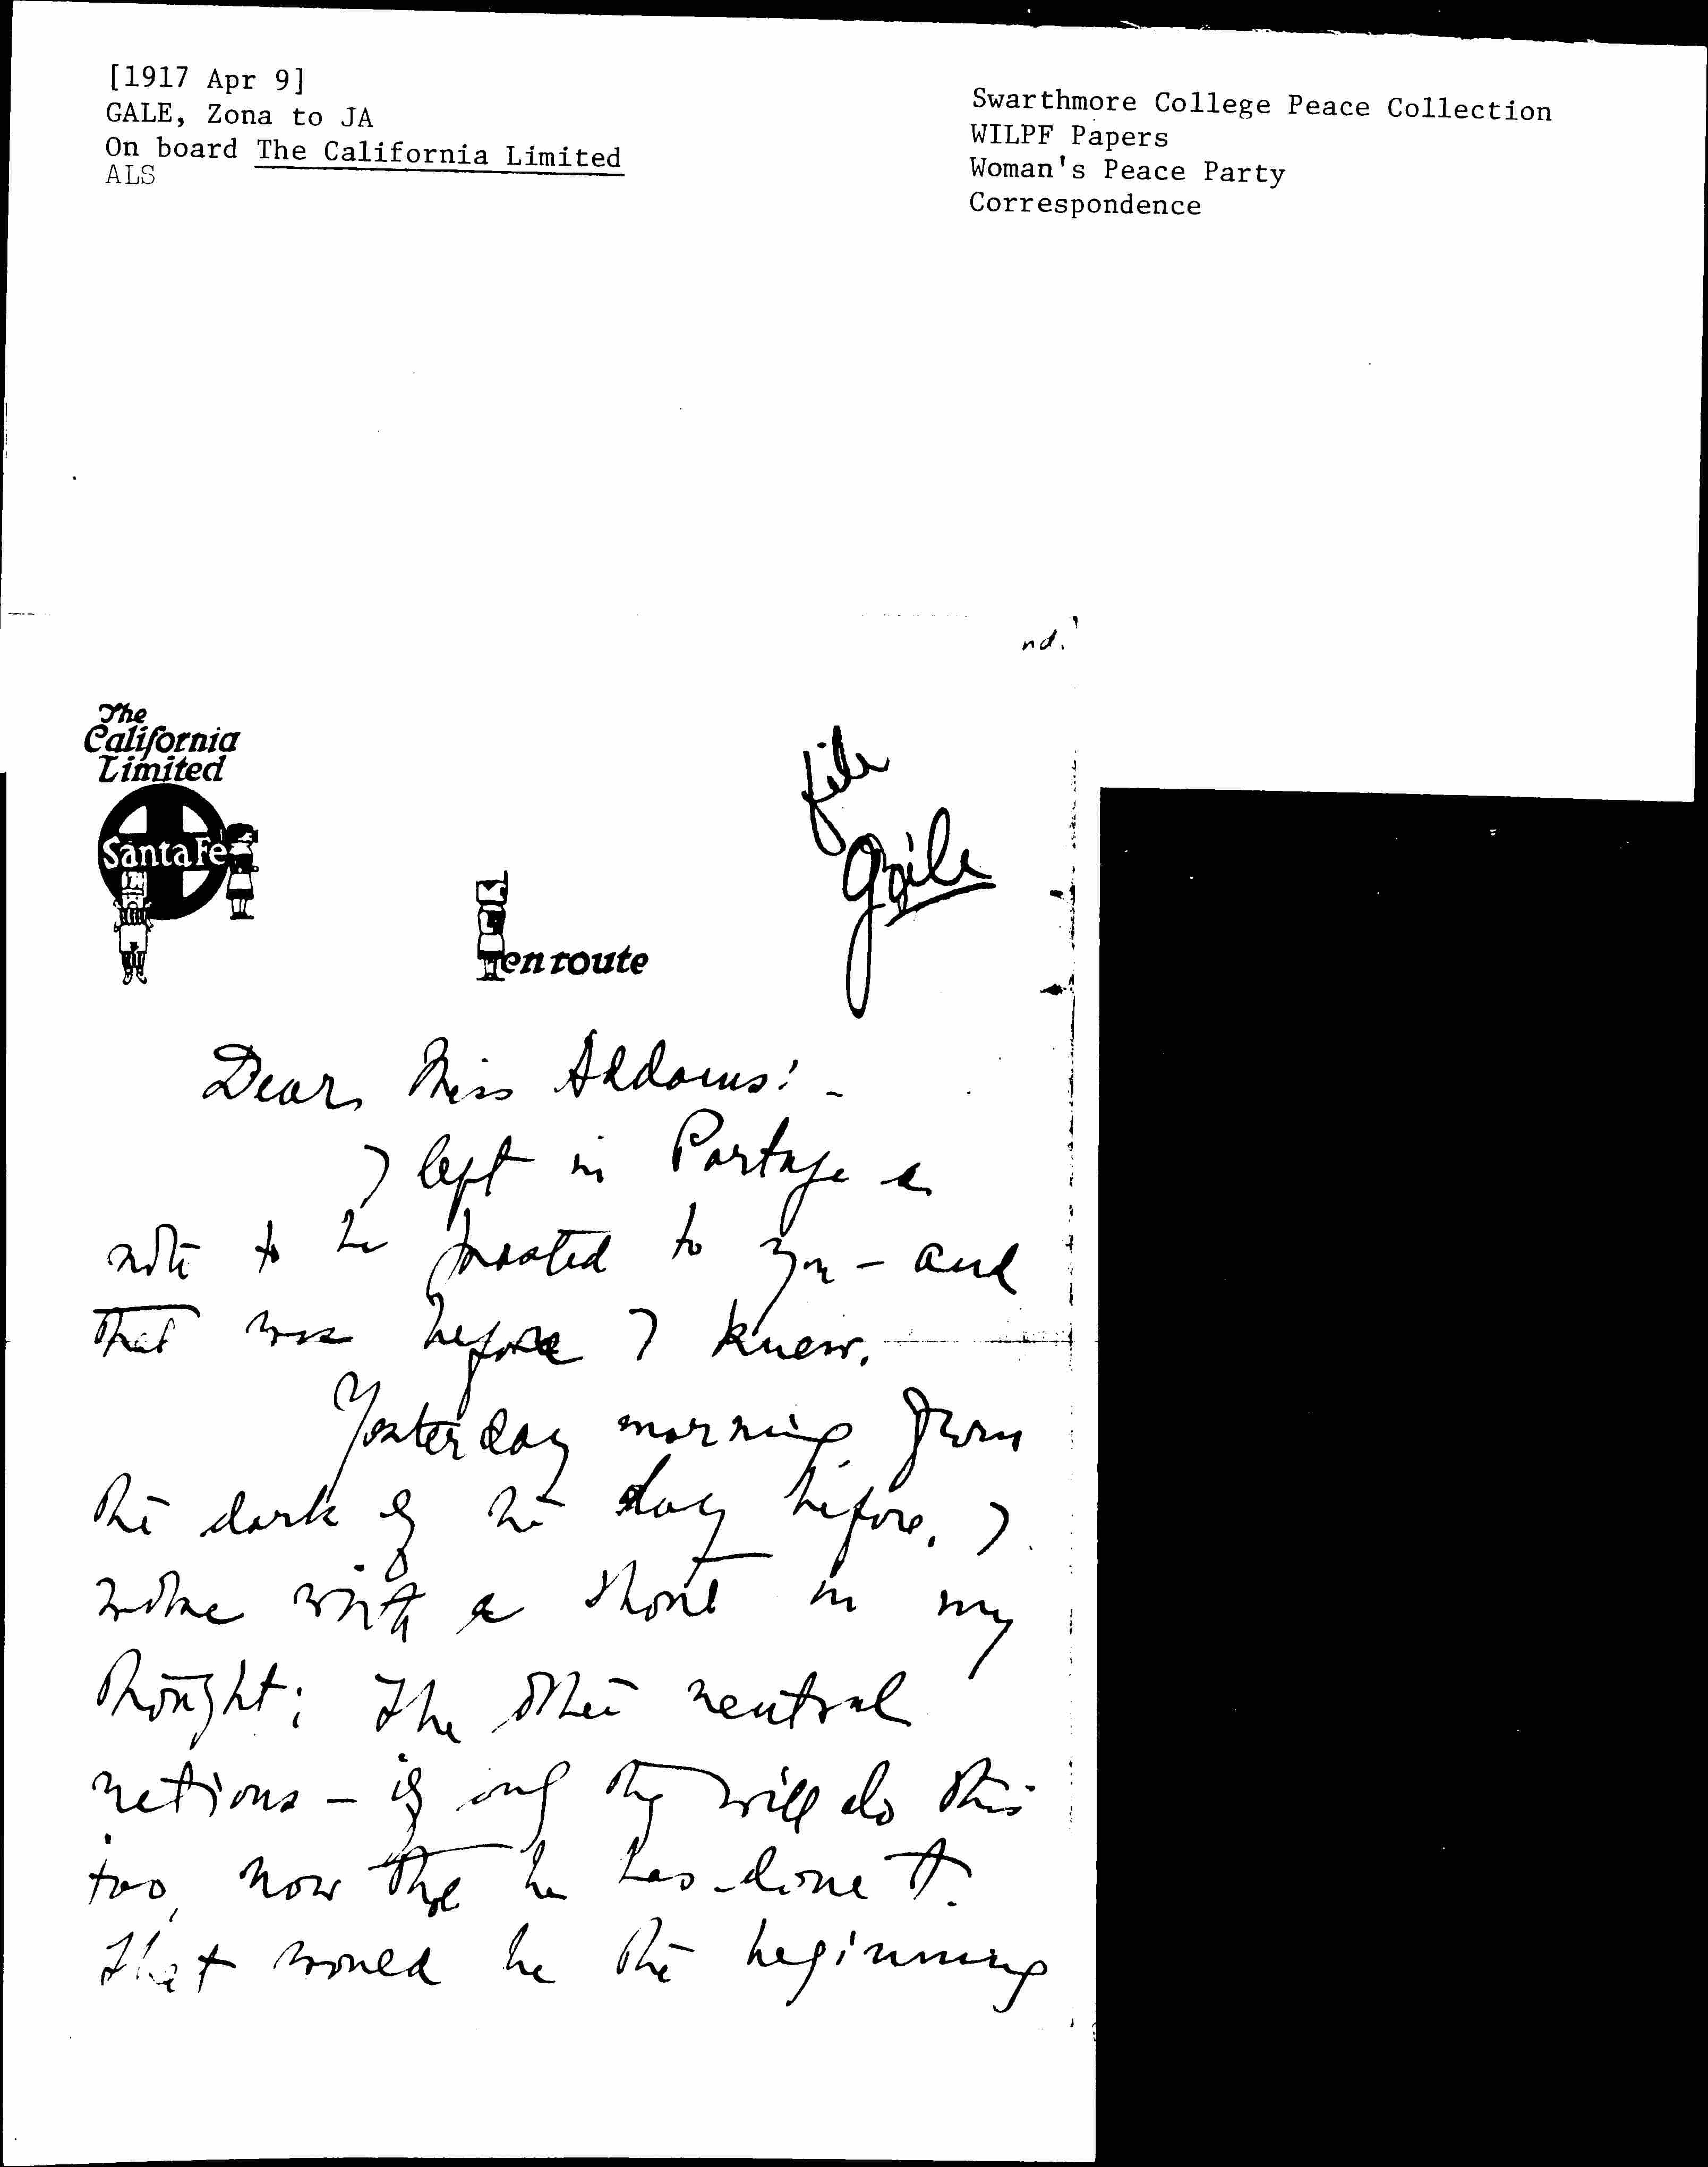 [1917 Apr 9]
GALE, Zona to JA
On board The California Limited
ALS
Swarthmore College Peace Collection
WILPF Papers
Woman's Peace Party
Correspondence
nd.
The
California
Limited
Santa Fe
en route
file
Dear Miss Addams: -
I left in Portage a
note to be posted to you - and
that was before I knew.
Yesterday morning from
the dark of the day before, I
woke with a shout in my
thought: The other neutral
nations - if only they will do this
too, now that he has done it.
That would be the beginning